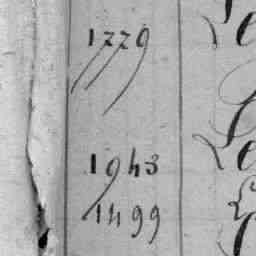 1779
1943
1499